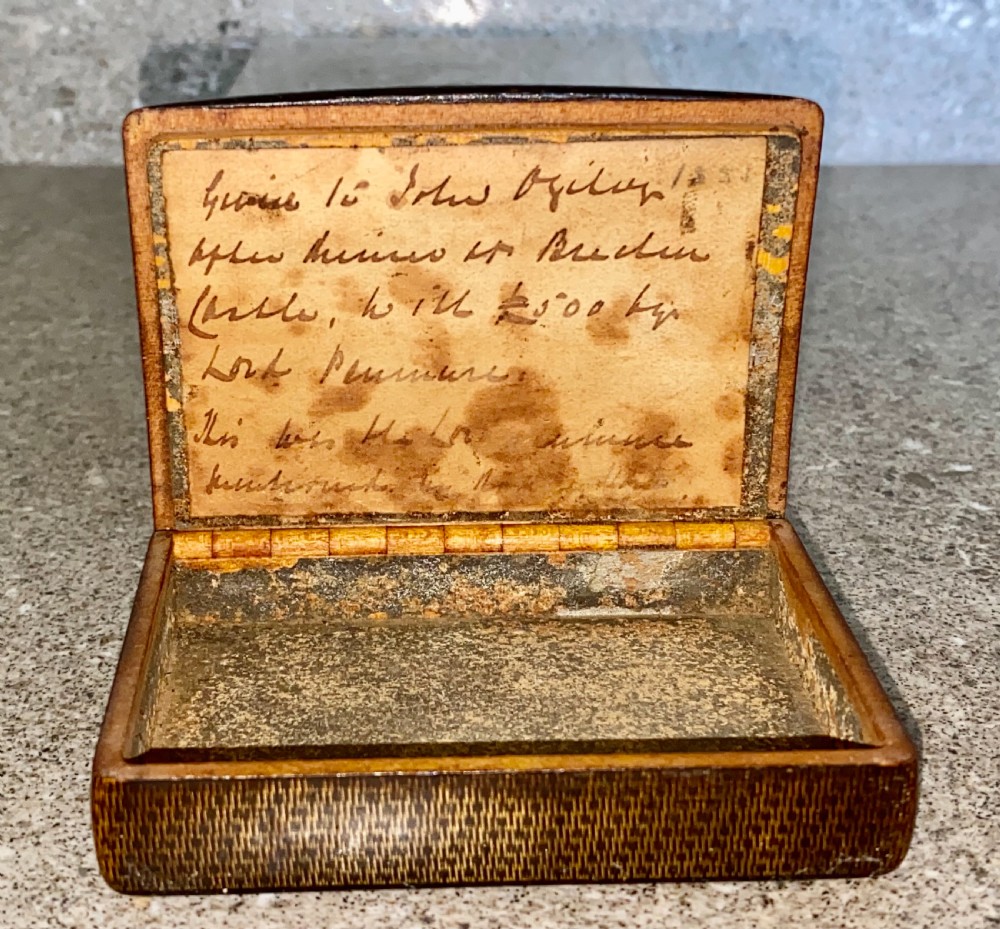 Given to John Ogilvy
after dinner at Brechin
Castle, with £500 by
Lord Panmure.
This was the Lord Panmure
mentioned by